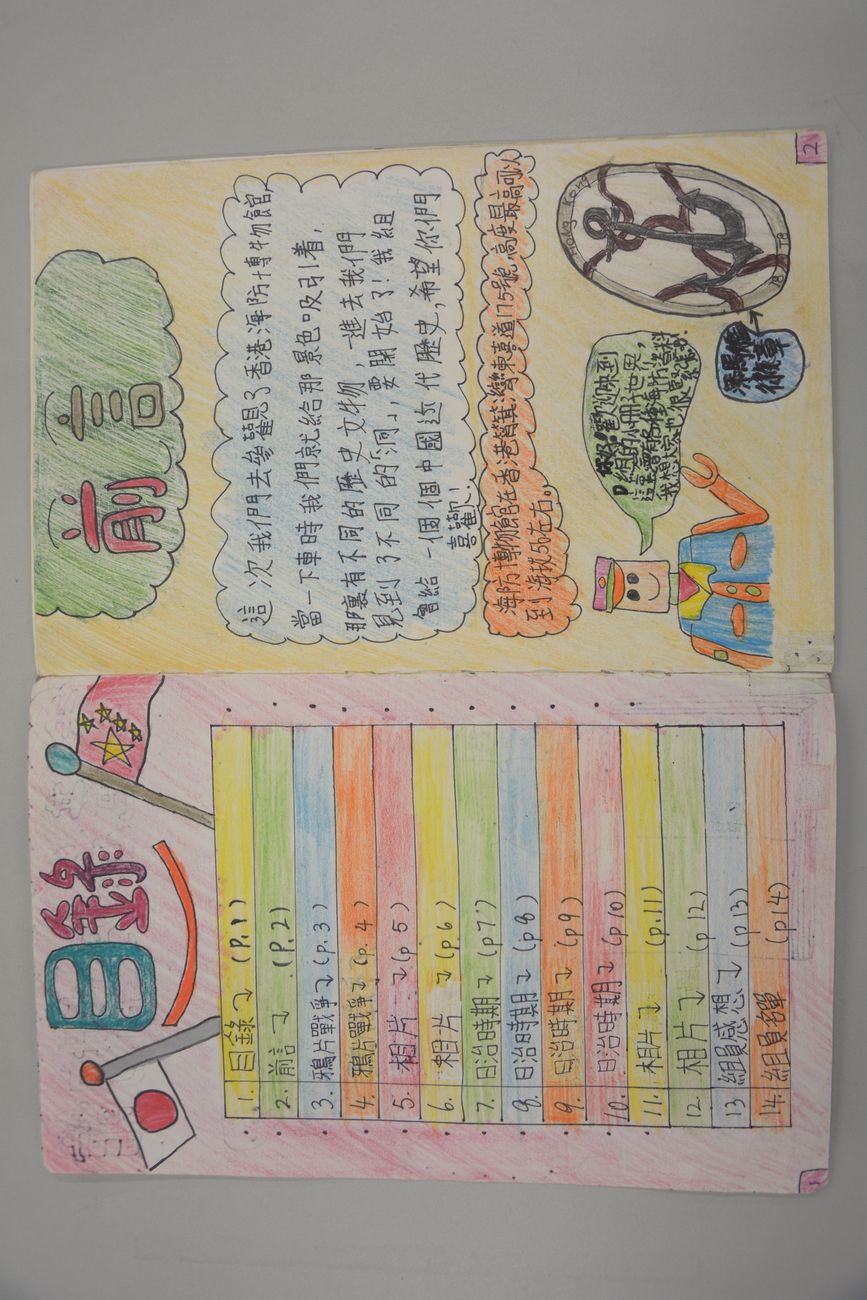 目錄
1. 目錄→ (P.1)
2. 前言→ (P.2)
3. 鴉片戰爭→ (p.3)
4. 鴉片戰爭→ (p.4)
5. 相片 →(p5)
6. 相片 →(p6)
7. 日治時期→ (p7)
8. 日治時期→ (p8)
9. 日治時期→ (p9)
10. 日治時期→ (p10)
11. 相片→ (p.11)
12. 相片→ (p12)
13 組員感想→ (p13)
14. 組員名單 (p14)
1
前言
這次我們去參觀了香港海防博物館,
當一下車時我們就給那景色吸引着,
那裏有不同的歷史文物,一進去我們
見到了不同的「洞」,要開始了!我組
會給一個個中國近代歷史,希望你們
喜歡!
海防博物館在香港筲箕灣東喜道175號,高度最高可以
到海拔 左右。
歡迎來到
D組的小冊子世界,
Hong Kong
2